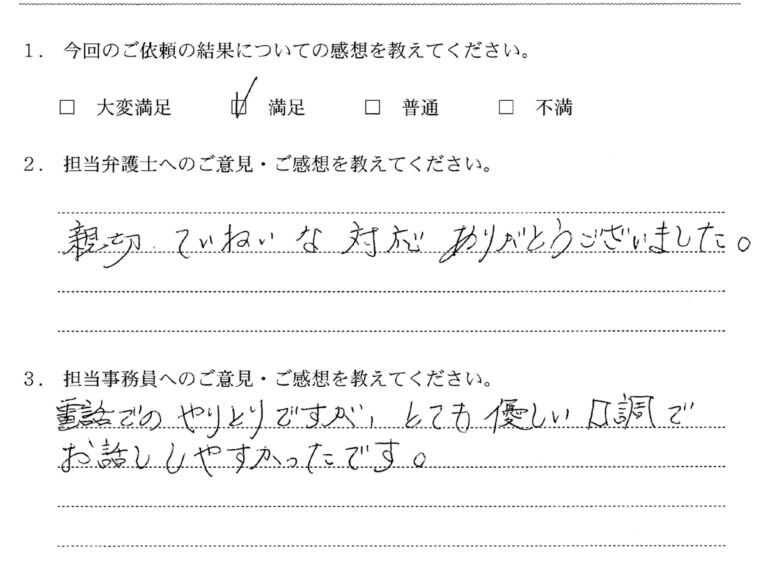 1. 今回のご依頼の結果についての感想を教えてください。
□ 大変満足 ☑ 満足 □ 普通 □ 不満
2. 担当弁護士へのご意見・ご感想を教えてください。
親切、ていねいな対応ありがとうございました。
3. 担当事務員へのご意見・ご感想を教えてください。
電話でのやりとりですが、とても優しい口調で
お話ししやすかったです。